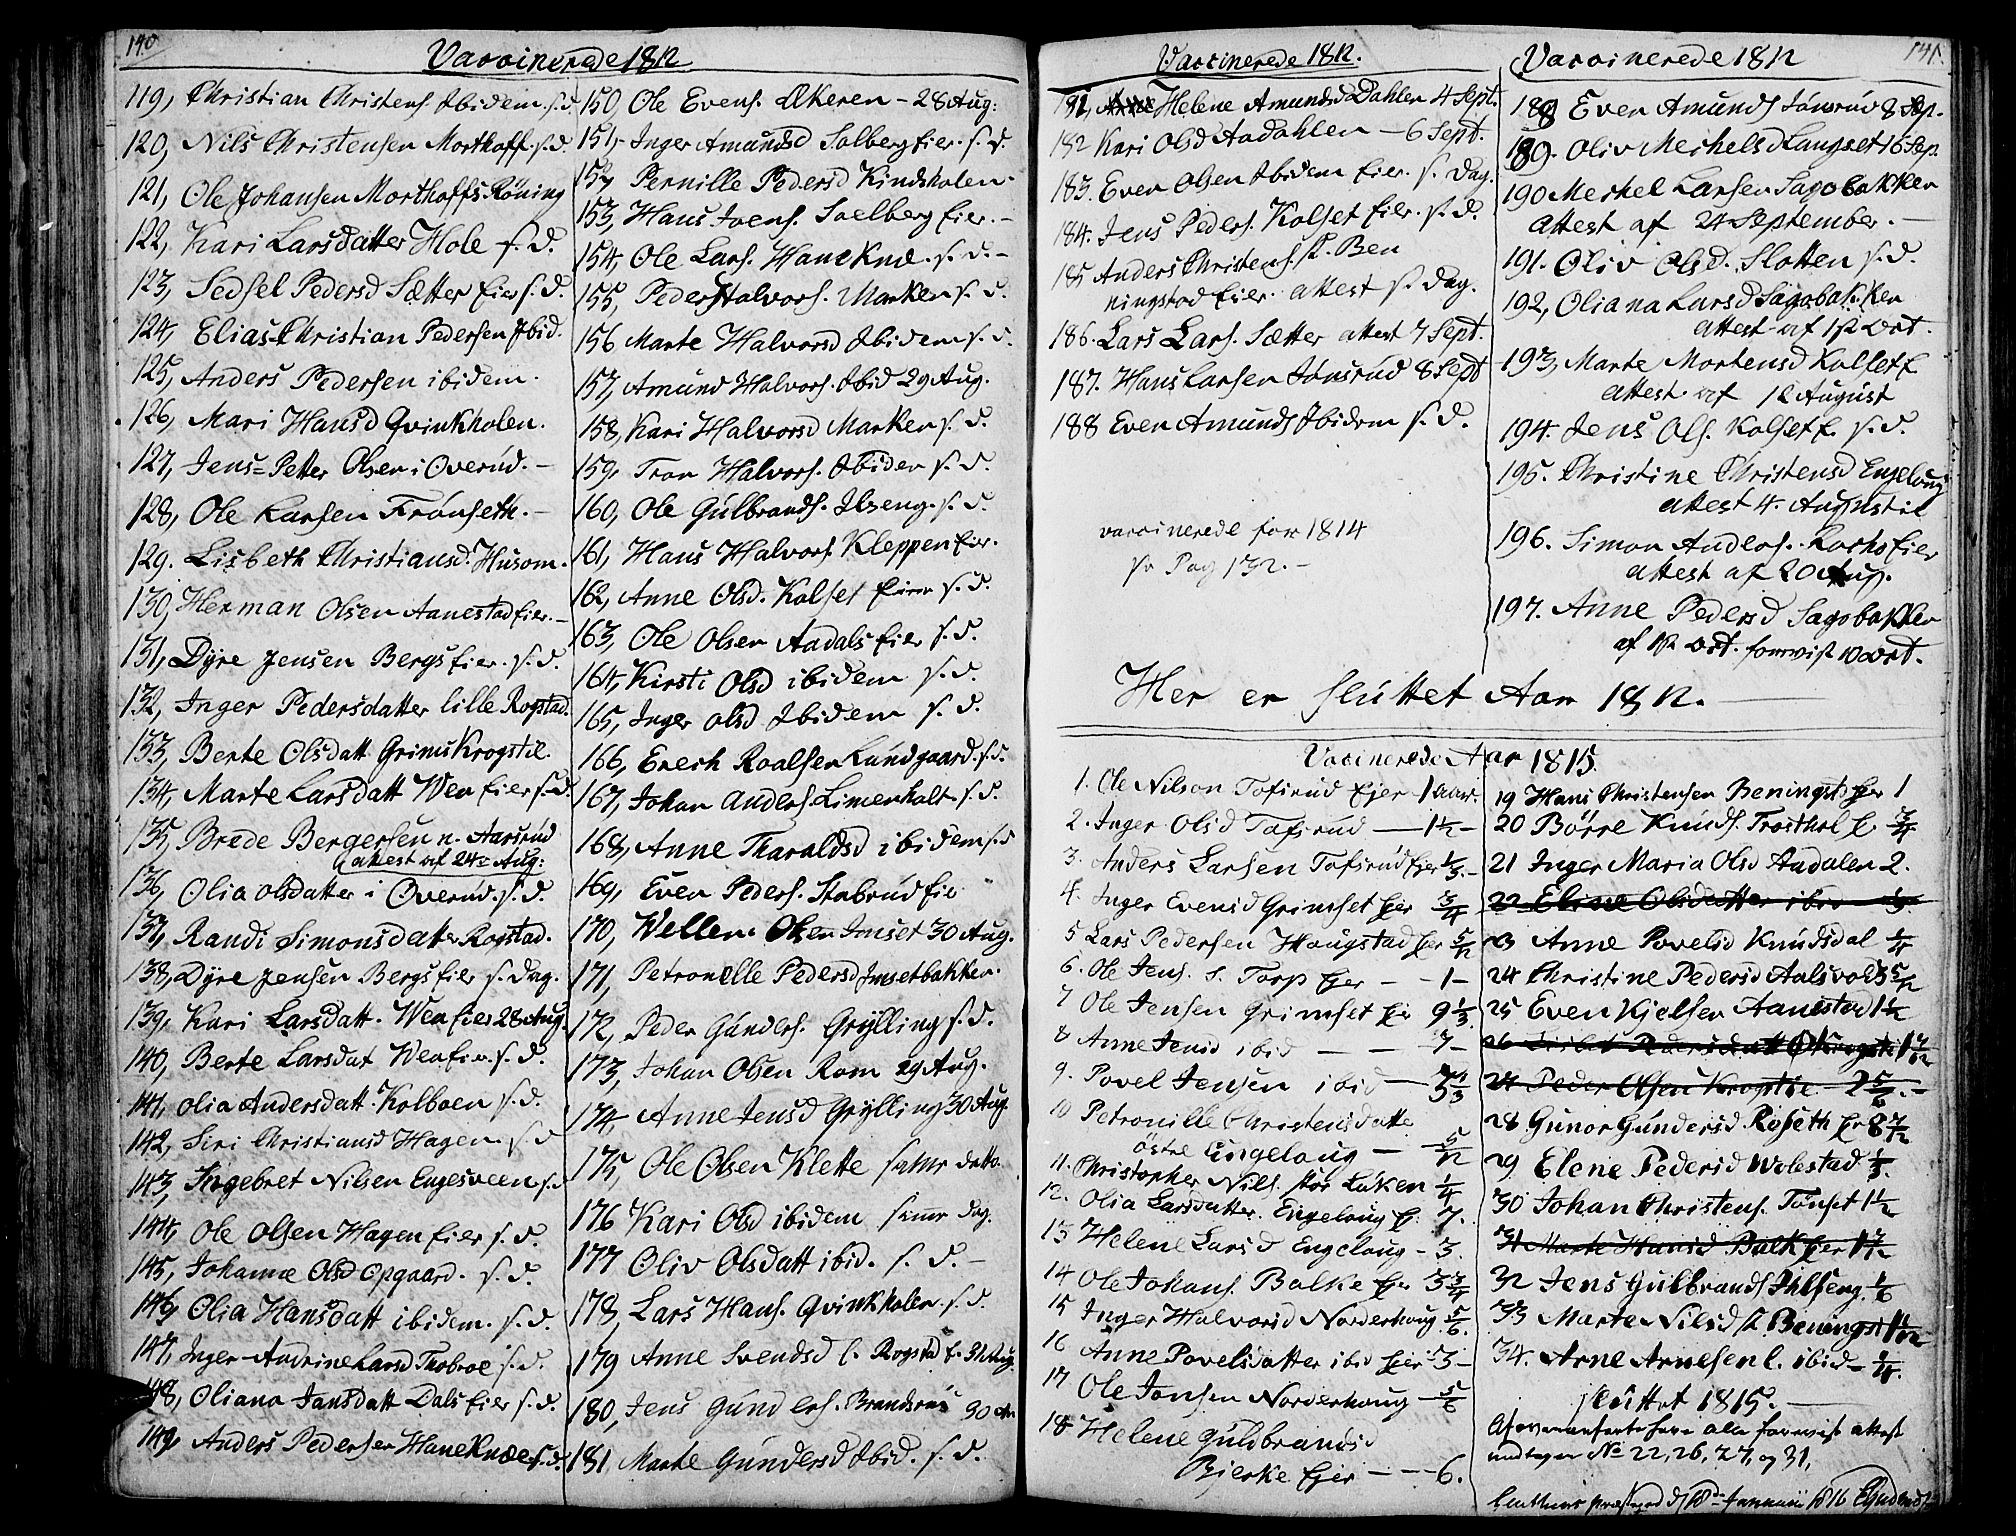 140
Vaccinerede 1812
119, Christian Christens. Ibidem. s. d.
120, Nils Christensen Morthoff. s. d.
121, Ole Johansen Morthoffs Röning
122, Kari Larsdatter Hole s. d.
123, Sedsel Pedersd Sætter Eier s. d.
124, Elias Christian Pedersen Ibid.
125, Anders Pedersen ibidem.
126, Mari Hansd Qvinkholen.
127, Jens=Petter Olsen i Overud. –
128, Ole Larsen Frönseth. –
129. Lisbeth Christiansd. Husom.
130, Herman Olsen Aanestad Eier. –
131, Dÿre Jensen Bergs Eier. s. d.
132, Inger Pedersdatter lille Rogstad.
133, Berte Olsdatt Grims Krogstil.
134, Marte Larsdatt Wea Eier s. d.
135, Brede Bergersen n. Aarsrud
attest af 24de Aug:
136, Olia Olsdatter i Overud. s. d.
137, Randi Simonsdatter Rogstad.
138, Dÿre Jensen Bergs Eier s. Dag.
139, Kari Larsdatt. Wea Eier 28 Aug.
140, Berte Larsdat Wea Eier. s. d.
141, Olia Andersdatt. Kolboen s. d.
142, Siri Christiansd Hagen. s. d
143, Ingebret Nilsen Engesveen s. d
144, Ole Olsen Hagen Eier s. d.
145, Johanne Olsd Opgaard. s. d.
146, Olia Hansdatt ibidem. s. d.
147, Inger Andrine Larsd Thobroe s. d.
148, Oliana Jansdatt Dals Eier s. d.
149, Anders Pedersen Hane Knæe. s. d.
150, Ole Evens. Økeren – 28 Aug:
151, Inger Amundsd Solberg Eier. s. d.
152, Pernille Pedersd Kindsholen.
153, Hans Joens. Soelberg Eier. –
154, Ole Lars. Hane Knæ. s. d. –
155, Peder Halvors. Marken s. d.
156 Marte Halvorsd Ibidem s. d.
157, Amund Halvors. Ibid 29 Aug.
158, Kari Halvorsd Marken s. d.
159, Tron Halvors. Ibiden s. d.
160, Ole Gulbrands. Ilseng. s. d.
161, Hans Halvors. Kleppen Eier.
162, Anne Olsd. Kolset Eier s. d.
163, Ole Olsen Aadals Eier s. d.
164, Kirsti Olsd ibidem s. d.
165, Inger Olsd Ibidem s. d.
166, Erech Roalsen Lundgaard. s. d.
167, Johan Anders. Limenholt. s. d.
168, Anne Tharaldsd ibidem s. d
169, Even Peders. Stabrud Eie
170, Wellem Olsen Imset 30 Aug.
171, Petronelle Pedersd Imsetbakken.
172, Peder Gunders. Grÿlling s. d.
173, Johan Olsen Rom 29 Aug.
174, Anne Jensd Grÿlling 30 Aug.
175, Ole Olsen Klette samme datto.
176 Kari Olsd ibidem samme Dag.
177 Oliv Olsdatt ibid. s. d. –
178, Lars Hans. Qvinkholen. s. d.
179 Anne Svendsd l. Rogstad E. 31 Aug.
180, Jens Gunders. Brandsrud 30
181 Marte Gundersd Ibid. s. d.
Vaccinerede 1812.
Helene Amundsd Dahlen 4 Sept.
182 Kari Olsd Aadahlen – 6 Sept.
183. Even Olsen Ibidem Eier. s. Dag.
184. Jens Peders. Kolset Eier. s. d.
185 Anders Christens. St. Ben
ningstad Eier. attest s. dag.
186. Lars Lars. Sætter attest 7 Sept.
187. Hans Larsen Jönsrud 8 Sept
188 Even Amunds Ibidem s. d.
vaccinerede for 1814
se Pag 132. –
Vaccinerede 1812
141.
189 Even Amunds Jönsrud 8 Sep.
189. Oliv Mechelsd Langset 16 Sep.
190 Mechel Larsen Sagobakken
attest af 24 September. –
191. Oliv Olsd. Slotten s. d.
192, Oliana Larsd Sagobakken
attest af 1ste Oct.
193, Marte Mortensd Kolset E.
attest af 12 August
194. Jens Ols. Kolset E. s. d.
195. Christine Christensd Engeloug
attest 4. Augusti
196. Simon Anders. Korho Eier
attest af 20 Aug.
197. Anne Pedersd Sagobakken
af 1ste Oct. forevist 10 Oct.
Her er sluttet Aar 1812. –
Vaccinerede Aar 1815
1. Ole Nilson Tofsrud Ejer – 1 aar.
2. Inger Olsd Tofsrud – 1½ –
3. Anders Larsen Tofsrud Ejer ⅓. –
4. Inger Evensd Grimset Ejer ¾
5 Lars Pedersen Haugstad Ejer 5/12
6. Ole Jens. s. Torp Ejer – – 1 –
7 Ole Jensen Grimset Ejer 9⅓.
8 Anne Jensd ibid – – 7 –
9. Povel Jensen ibid –
10 Petronille Christensdatte
östre Engeloug – 5/12
11. Christopher Nils. stor Luken ¼
12. Olia Larsdatter. Engeloug E. 7.
13 Helene Larsd Engeloug – 3.
14 Ole Johans. Balke Ejer 3¾
15 Inger Halvorsd Norderhoug 5/6.
16 Anne Povelsdatter ibid Ejer 3 –
17 Ole Jonsen Norderhoug – 5/6
18 Helene Guldbrandsd
Bjerke Ejer – – 6.
19 Hans Christensen Beningst. Ejer 1
20 Börre Knuds. Frosthol E. ¾
21 Inger Maria Olsd Aadalen 2.
22 Eline Olsdatter ibid – ⅓.
23 Anne Povelsd Knudsdal ¼
24 Christine Pedersd Aalsvold 3 5/12
25 Even Kjelsen Aanestad 1½
26 Lisbet Pedersdatt Krogsti
27 Peder Olsen Krogstie 2
28 Gunor Gundersd Röseth Ejer 8 7/12
29 Elene Pedersd Wolestad ⅓.
30 Johan Christens. Tönset 1½
31 Marte Hansd Balk Ejer
32 Jens Gulbrands Ihlseng. 1/6
33 Marte Nilsd st. Beningst
34. Arne Arnesen l. ibid – ¾.
sluttet 1815. –
Af ovenanförte have alle forevist attest
undtagen No 22, 26, 27, og 31,
d 18de Januarii 1816